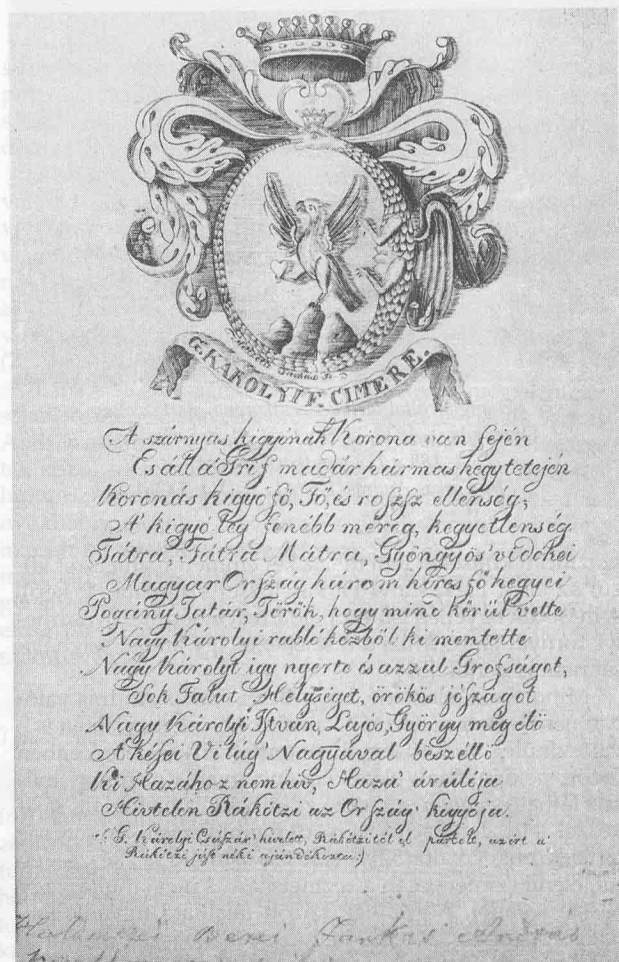 G. KÁROLYI F. CIMERE.
A szárnyas kigyónak Korona van fején
És áll a' Grif madár hármas hegy tetején
Koronás kigyó fő, Fő, és roszsz ellenség,
A' kigyó leg fenébb méreg, kegyetlenség
Tátra, Fátra Mátra, Gyöngyös vidékei
Magyar Ország három hires fő hegyei
Pogány Tatár, Török, hogy mind kőrűl vette
Nagy Károlyi rabló kézből ki mentette
Nagy Károlyt igy nyerte és azzal Grófságot,
Sok Falut Helységet, örökös jószágot
Nagy Károlyi István, Lajos, György még élő
A kései Világ' Nagyával beszéllő
Ki Hazához nem hiv, Haza' árulója
Hivtelen Rákótzi az Ország' kigyója.
G. Károlyi Császár' hivelett, Rákótzitól el pártolt, azért a'
Rákótzi jóst néki ajándékozta:)